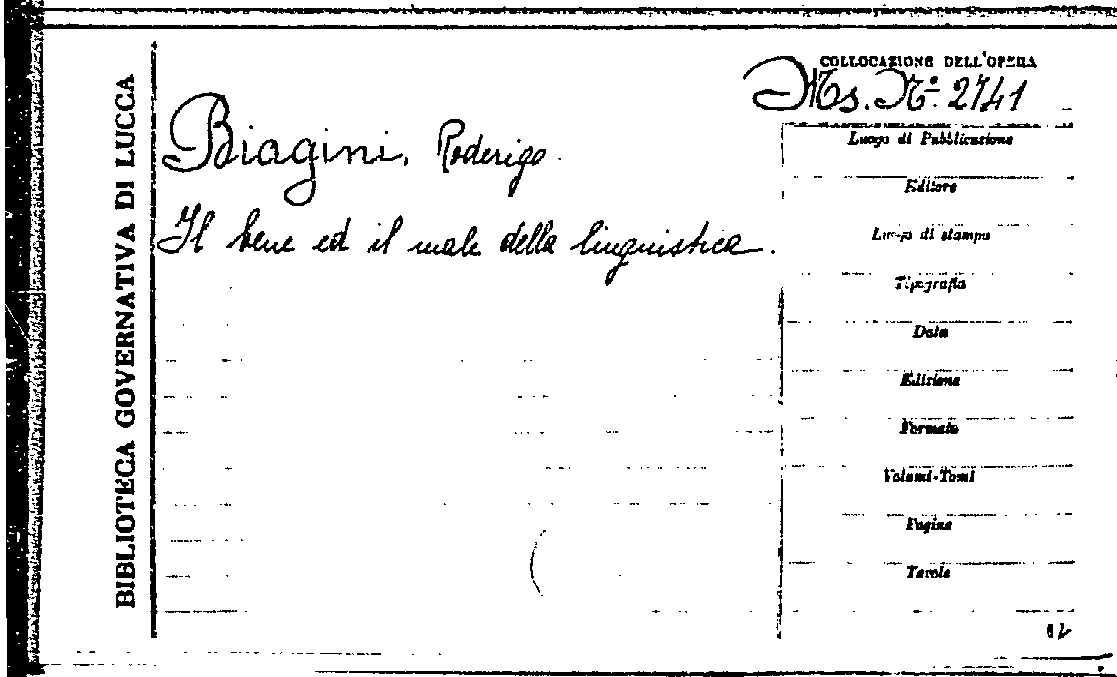 BIBLIOTECA GOVERNATIVA DI LUCCA
COLLOCAZIONE DELL'OPERA
Ms. N.º 2741
Biagini, Roderigo.
Il bene ed il male della linguistica.
Luogo di Pubblicazione
Editore
Luogo di stampa
Tipografia
Data
Edizione
Formato
Volumi-Tomi
Pagine
Tavole